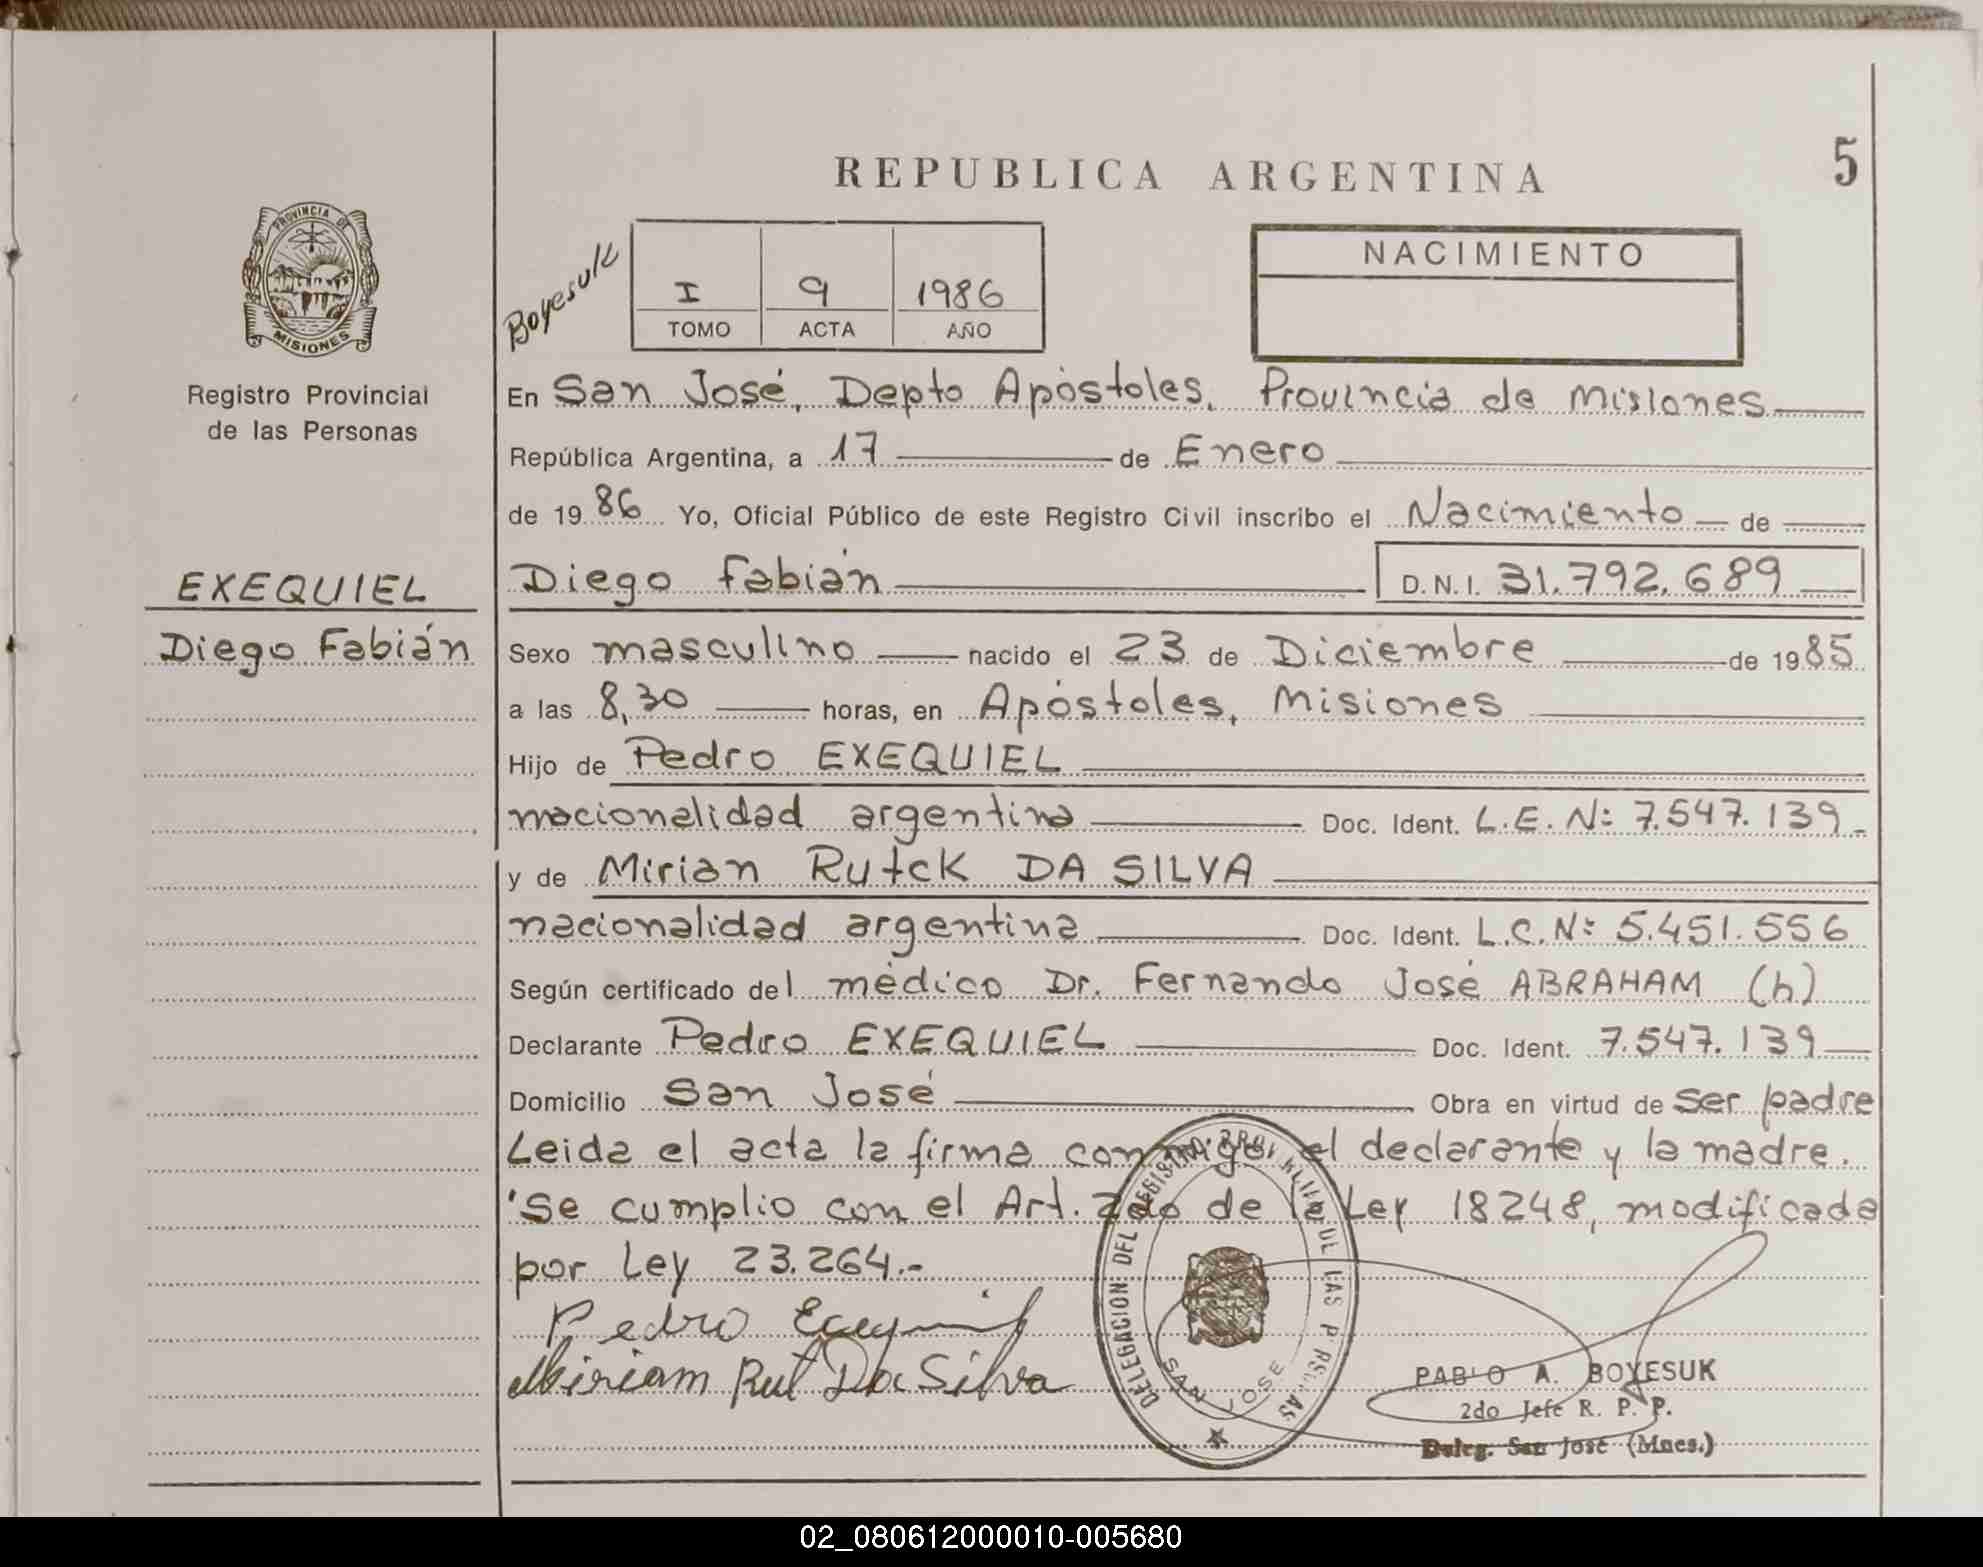 REPUBLICA ARGENTINA
5
PROVINCIA DE
MISIONES
Registro Provincial
de las Personas
EXEQUIEL
Diego Fabián
Boyesuk
I 9 1986
TOMO ACTA AÑO
NACIMIENTO
En San José, Depto Apóstoles, Provincia de Misiones
República Argentina, a 17 de Enero
de 1986 Yo, Oficial Público de este Registro Civil inscribo el Nacimiento de
Diego Fabián D.N.I. 31.792.689
Sexo masculino nacido el 23 de Diciembre de 1985
a las 8,30 horas, en Apóstoles, Misiones
Hijo de Pedro EXEQUIEL
nacionalidad argentina Doc. Ident. L.E. Nº 7.547.139-
y de Mirian Rutck DA SILVA
nacionalidad argentina Doc. Ident. L.C. Nº 5.451.556
Según certificado del médico Dr. Fernando José ABRAHAM (h)
Declarante Pedro EXEQUIEL Doc. Ident. 7.547.139
Domicilio San José Obra en virtud de ser padre
Leida el acta la firma conmigo, el declarante y la madre.
Se cumplio con el Art. 2do de la Ley 18248, modificada
por Ley 23.264.-
Pedro
Miriam Rut Da Silva
DELEGACION DEL REGISTRO DE LAS
SAN JOSE
PABLO A. BOYESUK
2do Jefe R. P. P.
Deleg. San José (Mnes.)
02_080612000010-005680